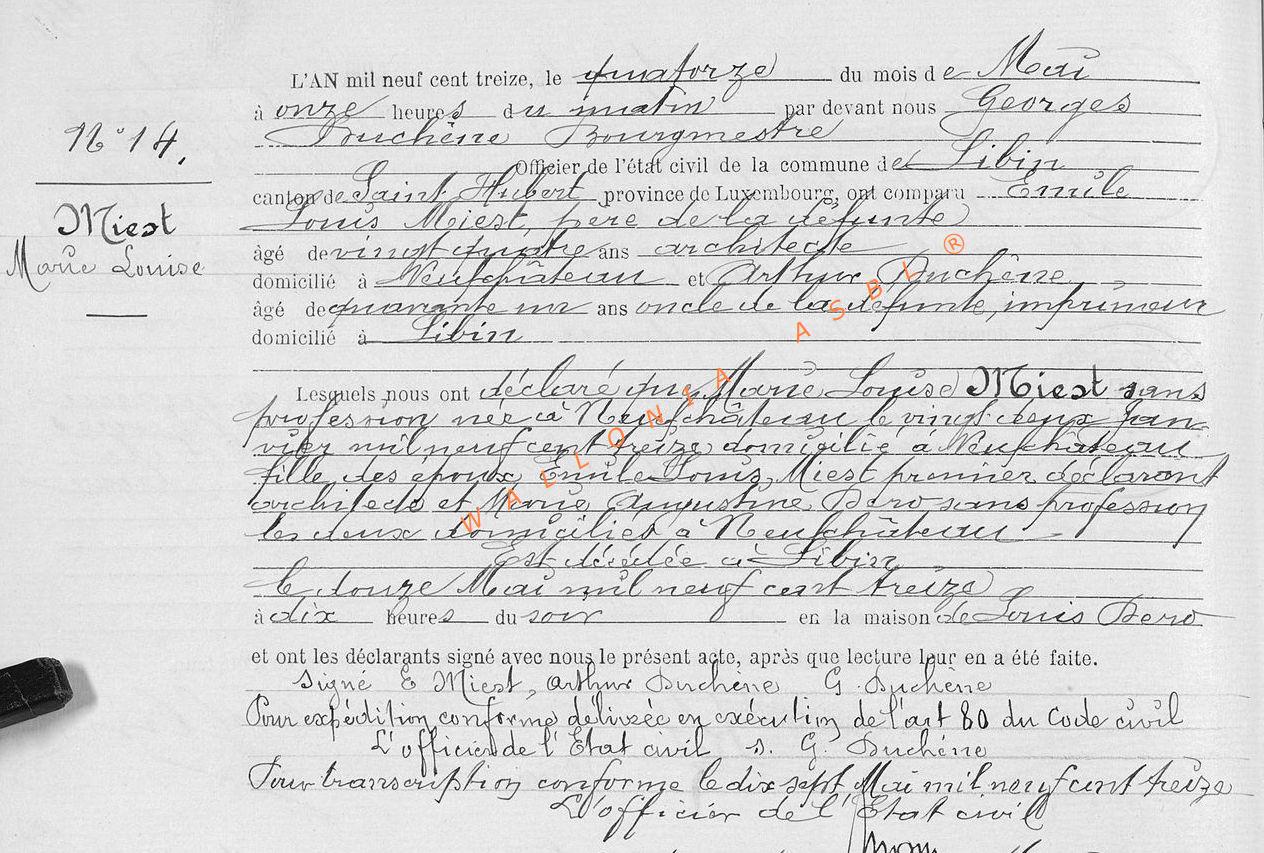 L'AN mil neuf cent treize, le quatorze du mois de Mai
à onze heures du matin par devant nous Georges
Duchêne Bourgmestre
Officier de l'état civil de la commune de Libin
canton de Saint Hubert province de Luxembourg, ont comparu Emile
Louis Miest, père de la défunte
âgé de vingt quatre ans architecte
domicilié à Neufchâteau et Arthur Duchêne
âgé de quarante un ans oncle de la défunte, imprimeur
domicilié à Libin
N° 14.
Miest
Marie Louise
Lesquels nous ont déclaré que Marie Louise Miest sans
profession née à Neufchâteau le vingt deux Jan
vier mil neuf cent treize domicilié à Neufchâteau
fille des époux Emile Louis Miest premier déclarant
architecte et Marie Augustine Dero sans profession
les deux domiciliés à Neufchâteau
Est décédée à Libin
le douze Mai mil neuf cent treize
à dix heures du soir en la maison de Louis Dero
et ont les déclarants signé avec nous le présent acte, après que lecture leur en a été faite.
Signé E Miest, Arthur Duchêne G. Duchêne
Pour expédition conforme délivrée en exécution de l'art 80 du Code civil
L'officier de l'Etat civil s. G. Duchêne
Pour transcription conforme le dix sept Mai mil neuf cent treize
L'officier de l'Etat civil
WALLONIA ASBL ®